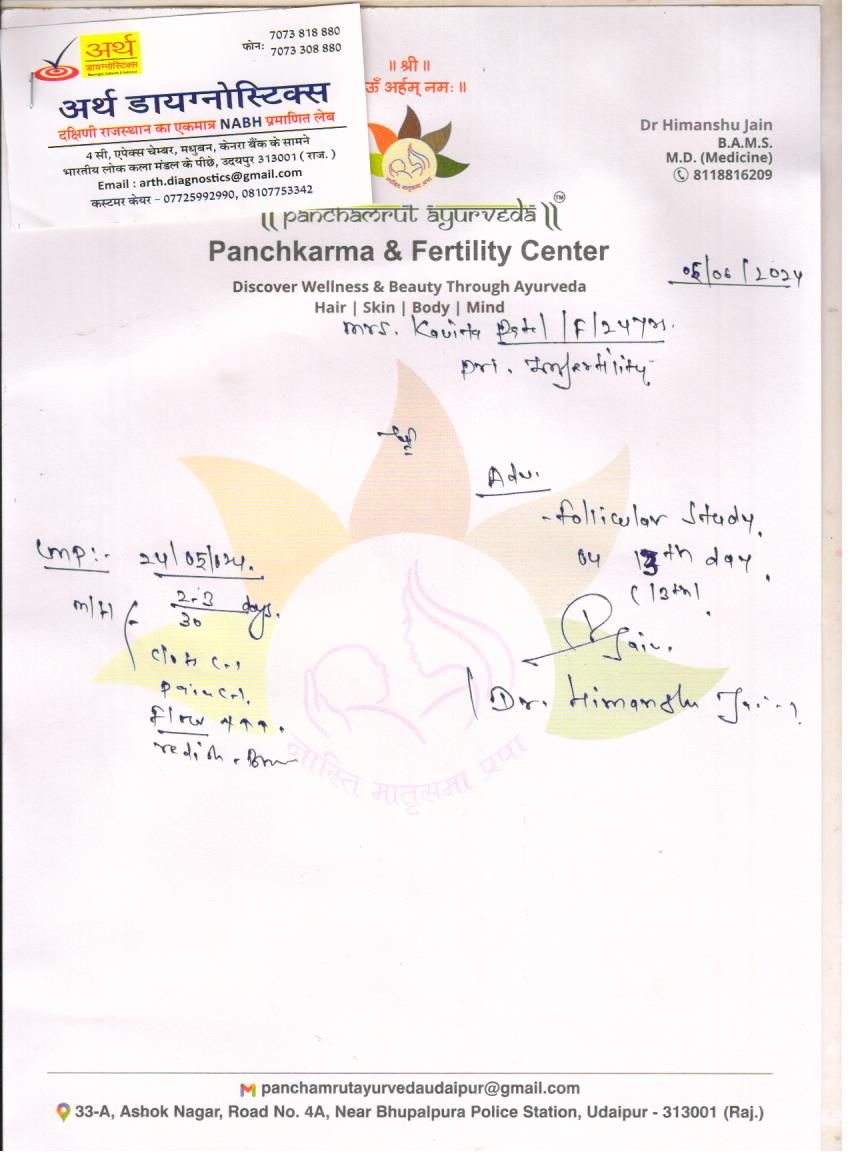 7073 818 880
फोन: 7073 308 880
अर्थ
डायग्नोस्टिक्स
अर्थ डायग्नोस्टिक्स
दक्षिणी राजस्थान का एकमात्र NABH प्रमाणित लेब
4 सी, एपेक्स चेम्बर, मधुबन, केनरा बैंक के सामने
भारतीय लोक कला मंडल के पीछे, उदयपुर 313001 ( राज. )
Email : arth.diagnostics@gmail.com
कस्टमर केयर - 07725992990, 08107753342
॥ श्री ॥
ॐ अर्हम् नमः ॥
Dr Himanshu Jain
B.A.M.S.
M.D. (Medicine)
8118816209
|| PANCHAMRUT AYURVEDA || TM
Panchkarma & Fertility Center
Discover Wellness & Beauty Through Ayurveda
Hair | Skin | Body | Mind
05/06/2024
Mrs. Kavita Patel /F/24yrs.
Pri. Infertility
Adv.
- Follicular Study.
13th day.
(13th).
LMP:- 24/05/024.
M/H
2-3 days.
30
Pain
Flow
redish
Jain.
Dr. Himanshu Jain
नास्ति मातृसमा प्रपा
panchamrutayurvedaudaipur@gmail.com
33-A, Ashok Nagar, Road No. 4A, Near Bhupalpura Police Station, Udaipur - 313001 (Raj.)